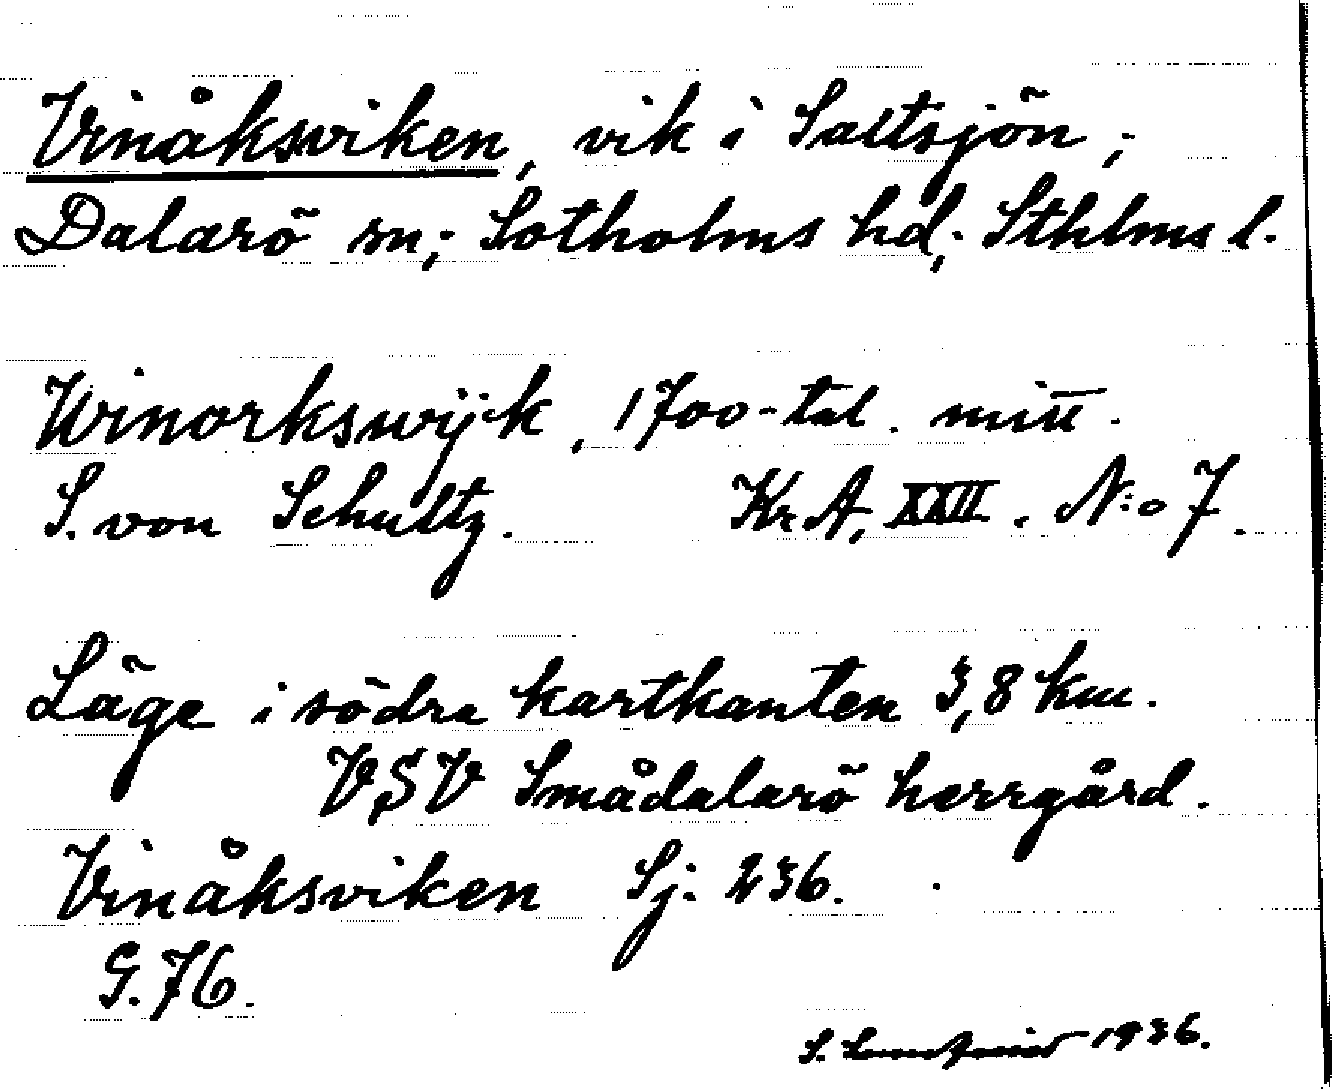 Vinåksviken, vik i Saltsjön,;
Dalarö sn,; Sotholms hd,; Sthlms l.
Winorkswijk, 1700-tal. mitt.
S. von Schultz. Kr A, XXII. N:o 7.
Läge i södra kartkanten 3,8 km.
VSV Smådalarö herrgård.
Vinåksviken Sj: 236.
G. 76.
S. 1936.